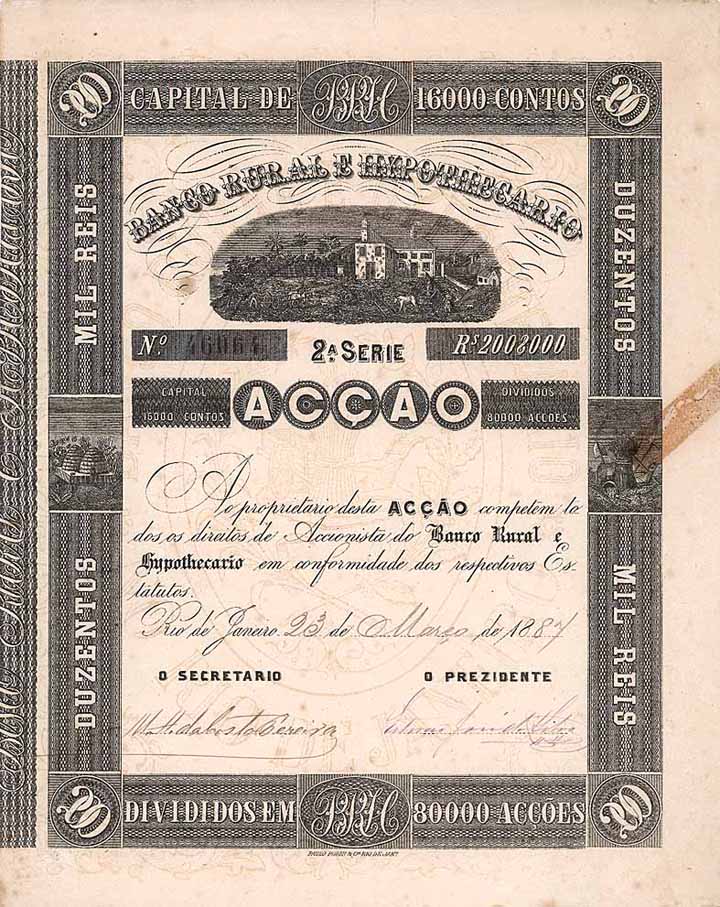 200
CAPITAL DE
BRH
16000 CONTOS
200
BANCO RURAL E HYPOTHECARIO
MIL REIS
DUZENTOS
Nº 46064
2ª SERIE
RS 200$000
CAPITAL
16000 CONTOS
ACÇÃO
DIVIDIDOS
80000 ACCÕES
Ao proprietario desta ACÇÃO competem to
dos os direitos de Accionista do Banco Rural e
Hypothecario em conformidade dos respectivos Es-
tatutos.
Rio de Janeiro 23 de Março de 1887
DUZENTOS
MIL REIS
O SECRETARIO
O PREZIDENTE
200
DIVIDIDOS EM
BRH
80000 ACÇÕES
200